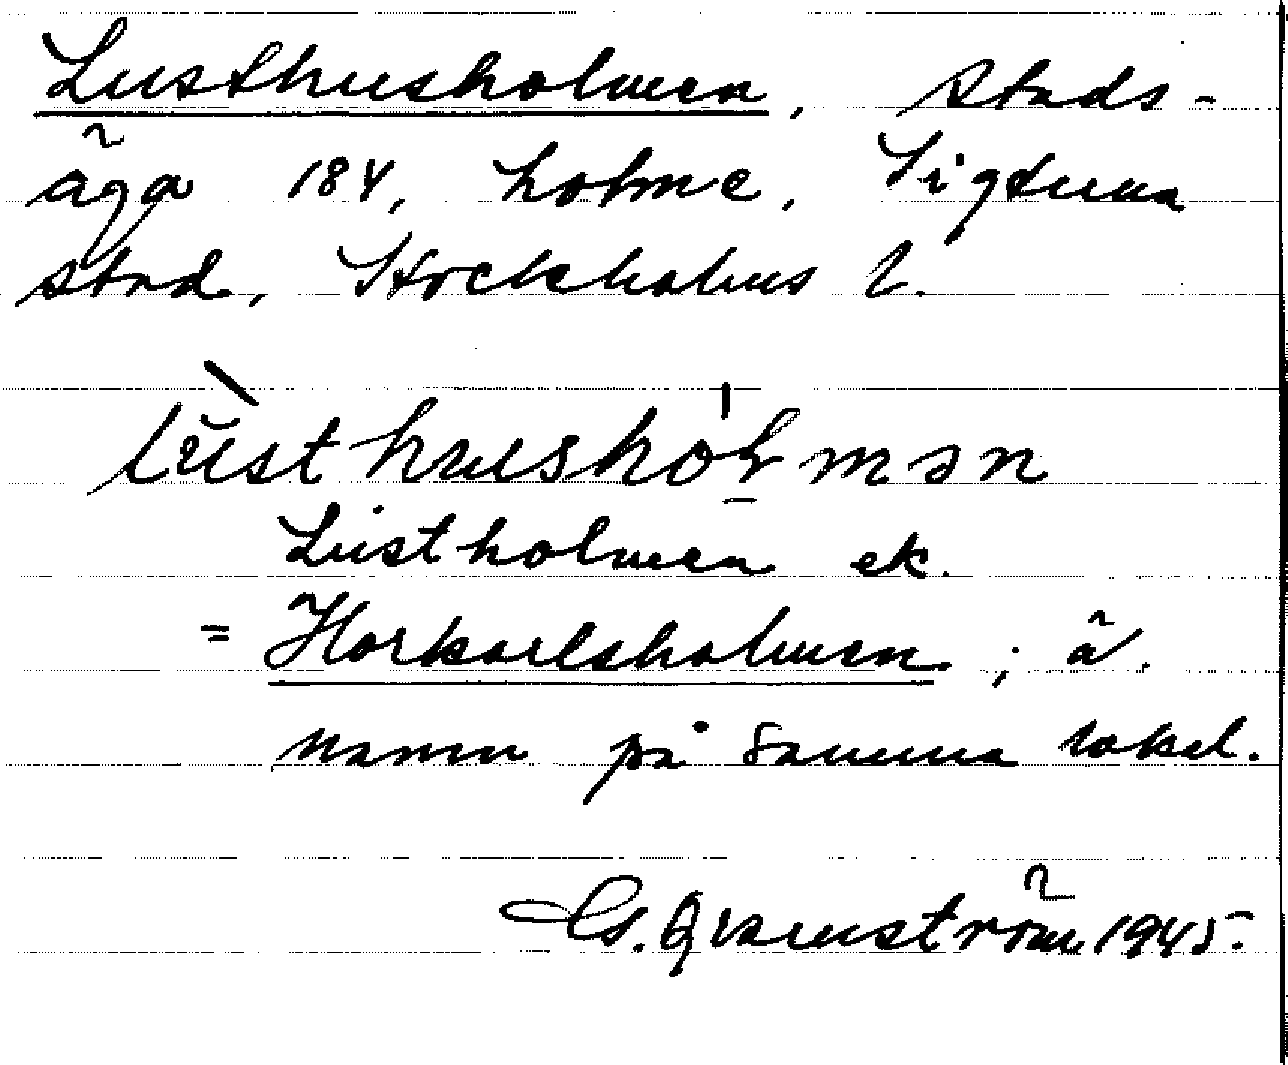 Lusthusholmen, stads-
äga 184, holme, Sigtuna
stad, Stockholms l.
lùsthushól̠mən
Lustholmen ek.
= Horkarlsholmen; ä.
namn på samma lokal.
Cs. Qvarnström 1945.